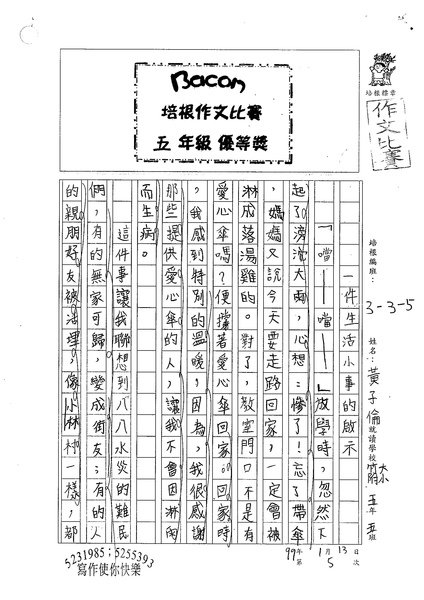 Bacon
培根作文比賽
五年級優等獎
培根標章
作文比賽
培根編班：3-3-5
姓名：黃子倫
就讀學校
五年五班
99年1月13日
第5次
一件生活小事的啟示
「噹——噹——」放學時，忽然下
起了滂沱大雨，心想：慘了！忘了帶傘
，媽媽又說今天要走路回家，一定會被
淋成落湯雞的。對了，教室門口不是有
愛心傘嗎？便撐著愛心傘回家。回家時
，我感到特別的溫暖，因為，我很感謝
那些提供愛心傘的人，讓我不會因淋雨
而生病。
這件事讓我聯想到八八水災的難民
們，有的無家可歸，變成街友；有的人
的親朋好友被活埋，像小林村一樣，都
5231985；5255393
寫作使你快樂